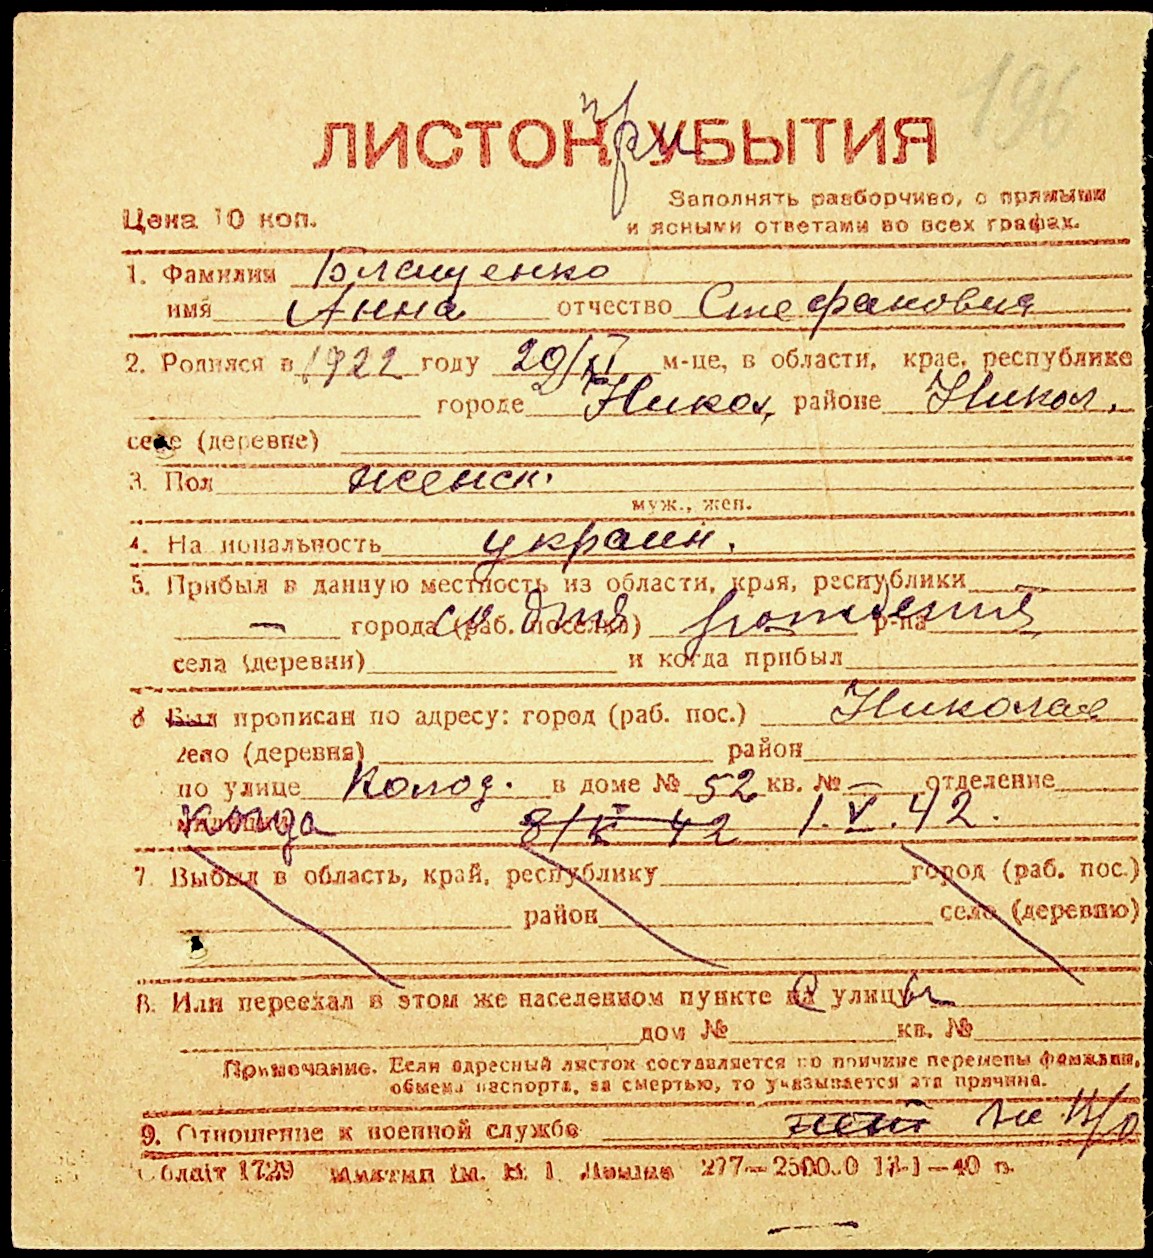 196
при
ЛИСТОК УБЫТИЯ
Цена 10 коп.
Заполнять разборчиво, с прямыми
и ясными ответами во всех графах.
1. Фамилия Блащенко
имя Анна отчество Стефановна
2. Родился в 1922 году 20/XI м-це, в области, крае, республике
городе Никол, районе Никол.
селе (деревне)
3. Пол женск.
муж., жен.
4. Национальность украин.
5. Прибыл в данную местность из области, края, республики
— города (раб. поселка) со дня рождения р-на
села (деревни) и когда прибыл
6 Был прописан по адресу: город (раб. пос.) Николаев
село (деревня) район
по улице Колод. в доме № 52 кв. № — отделение
милиции Когда 42 1.V.42.
7. Выбыл в область, край, республику город (раб. пос.)
район село (деревню)
8. Или переехал в этом же населенном пункте на улицу
дом № кв. №
Примечание. Если адресный листок составляется по причине перемены фамилии,
обмена паспорта, за смертью, то указывается эта причина.
9. Отношение к военной службе нет не н/о
Облліт 1729 277—2500.0 17-1—40 г.